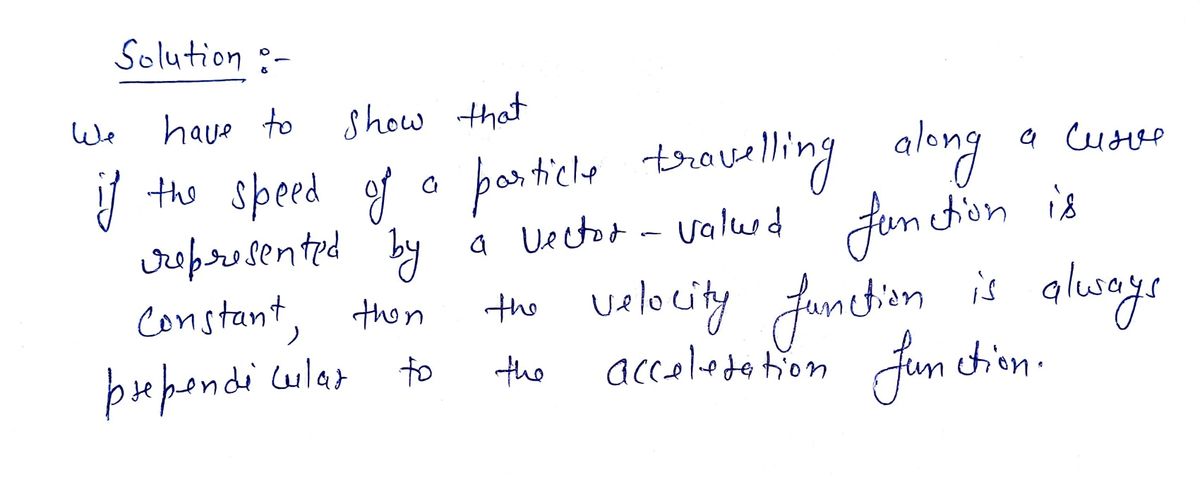 Solution :-
We have to show that
if the speed of a particle travelling along a curve
represented by a vector-valued function is
constant, then the velocity function is always
prependicular to the acceleration function.